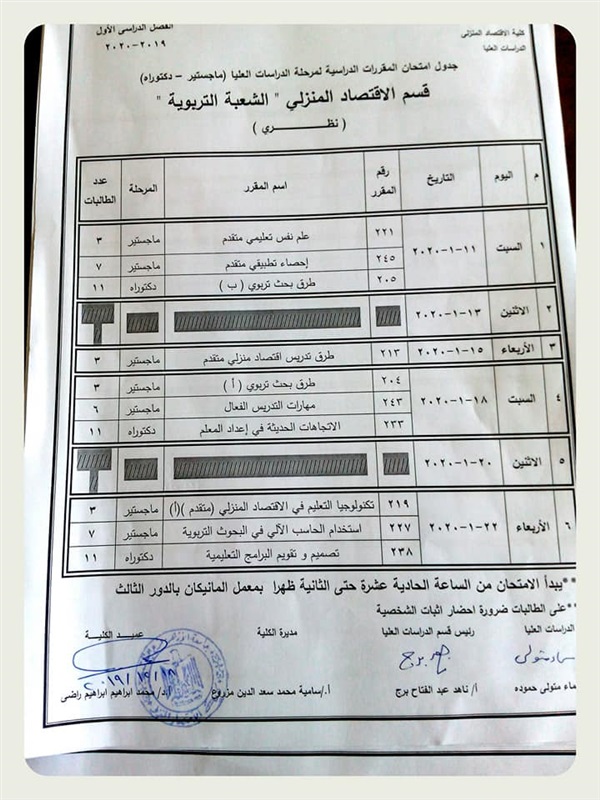 كلية الاقتصاد المنزلي
الدراسات العليا
الفصل الدراسى الأول
٢٠١٩-٢٠٢٠
جدول امتحان المقررات الدراسية لمرحلة الدراسات العليا (ماجستير – دكتوراه)
قسم الاقتصاد المنزلي " الشعبة التربوية "
( نظـــــــري )
م اليوم التاريخ رقم المقرر اسم المقرر المرحلة عدد الطالبات
١ السبت ١١-١-٢٠٢٠ ٢٢١ علم نفس تعليمي متقدم ماجستير ٣
٢٤٥ إحصاء تطبيقي متقدم ماجستير ٧
٢٠٥ طرق بحث تربوي ( ب ) دكتوراه ١١
٢ الاثنين ١٣-١-٢٠٢٠
٣ الأربعاء ١٥-١-٢٠٢٠ ٢١٣ طرق تدريس اقتصاد منزلي متقدم ماجستير ٣
٤ السبت ١٨-١-٢٠٢٠ ٢٠٤ طرق بحث تربوي ( أ ) ماجستير ٣
٢٤٣ مهارات التدريس الفعال ماجستير ٦
٢٣٣ الاتجاهات الحديثة في إعداد المعلم دكتوراه ١١
٥ الاثنين ٢٠-١-٢٠٢٠
٦ الأربعاء ٢٢-١-٢٠٢٠ ٢١٩ تكنولوجيا التعليم في الاقتصاد المنزلي (متقدم )(أ) ماجستير ٣
٢٢٧ استخدام الحاسب الآلي في البحوث التربوية ماجستير ٧
٢٣٨ تصميم و تقويم البرامج التعليمية دكتوراه ١١
**يبدأ الامتحان من الساعة الحادية عشرة حتى الثانية ظهرا بمعمل المانيكان بالدور الثالث
**على الطالبات ضرورة احضار اثبات الشخصية
الدراسات العليا رئيس قسم الدراسات العليا مديرة الكلية عميـد الكليـة
متولى حموده أ/ ناهد عبد الفتاح برج أ./سامية محمد سعد الدين مزروع أ.د/ محمد ابراهيم ابراهيم راضى